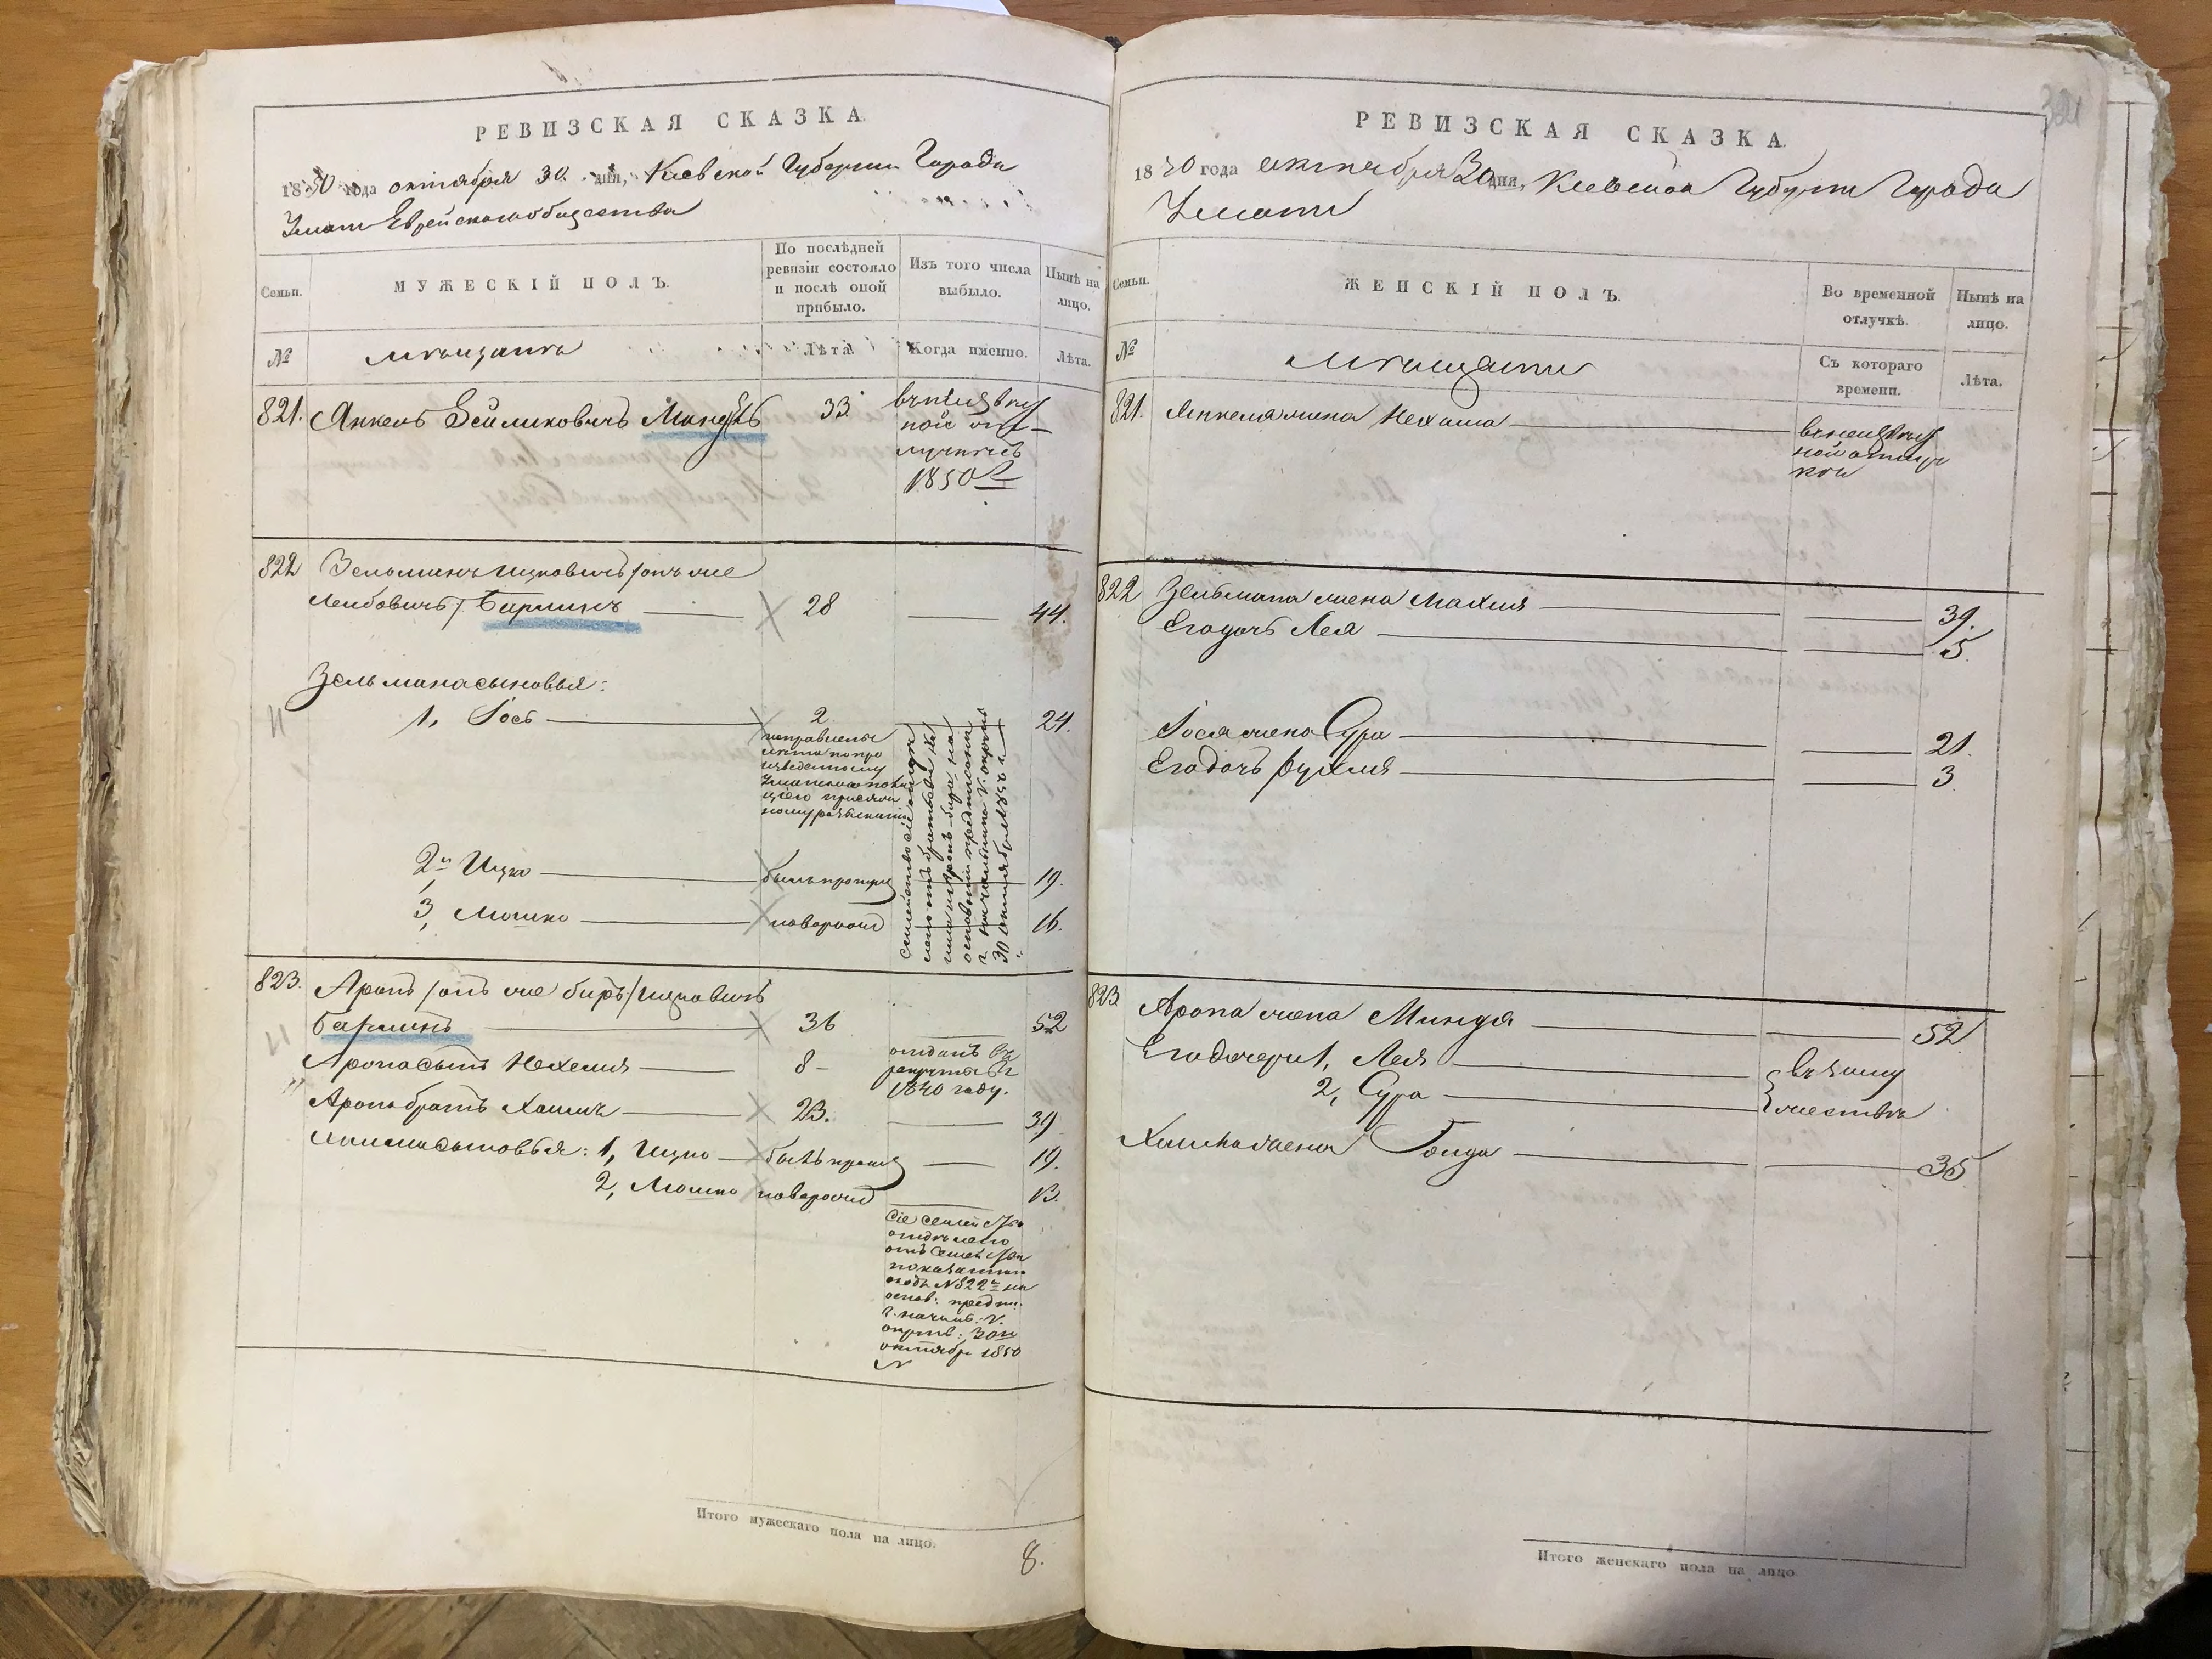 РЕВИЗСКАЯ СКАЗКА.
1850 года октября 30 дня, Киевской Губернии Города
Умани Еврейского общества
Семьи.
МУЖЕСКІЙ ПОЛЪ.
По послѣдней ревизіи состояло и послѣ оной прибыло.
Изъ того числа выбыло.
Нынѣ на лицо.
№
мѣщане
Лѣта.
Когда именно.
Лѣта.
821. Янкель Зейликовичъ 33. въ неизвѣст
ной от-
лучкѣ съ
1850 г.
822 Зельманъ Ицковичъ /онъ же
Лейбовичъ/ Берманъ 28 44.
Зельмана сыновья:
1, Іось 2 24.
2й Ицко былъ пропущ 19.
3, Мошко новорожд 16.
семейство сіе
30 октября
823. Аронъ /онъ же Беръ/ Ицковичъ
Берманъ 36 52
Арона сынъ Нехемия 8 отданъ въ
рекруты въ
1840 году.
Арона братъ Хаимъ 23. 39
Хаима сыновья: 1, Ицко былъ пропущ 19.
2, Мошко новорожд 13.
Сіе семейство
отдѣлено
отъ семейства
показаннаго
подъ №822м на
основ: предпи.
г. начальн: V.
округа: 30го
октября 1850
N
Итого мужескаго пола на лицо. 8.
321
РЕВИЗСКАЯ СКАЗКА.
1850 года октября 30 дня, Киевской Губерніи Города
Умани
Семьи.
ЖЕНСКІЙ ПОЛЪ.
Во временной отлучкѣ.
Нынѣ на лицо.
№
мѣщане
Съ котораго времени.
Лѣта.
821. Янкеля жена Нехама въ неизвѣст
ной отлуч
кѣ
822 Зельмана жена Махля 39.
Его дочь Лея 5.
Іося жена Сура 21.
Его дочь Рухля 3.
823. Арона жена Миндя 52
Его дочери 1, Лея въ заму
2, Сура жествѣ
Хаима жена Голда 35
Итого женскаго пола на лицо